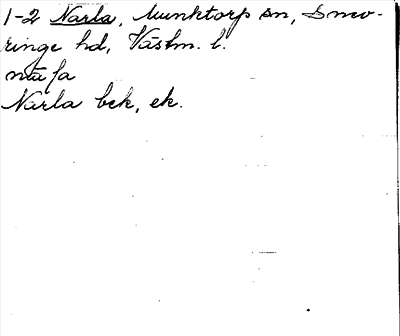 1-2 Narla, Munktorp sn, Snev-
ringe hd, Västm. l.
Narla bek, ek.